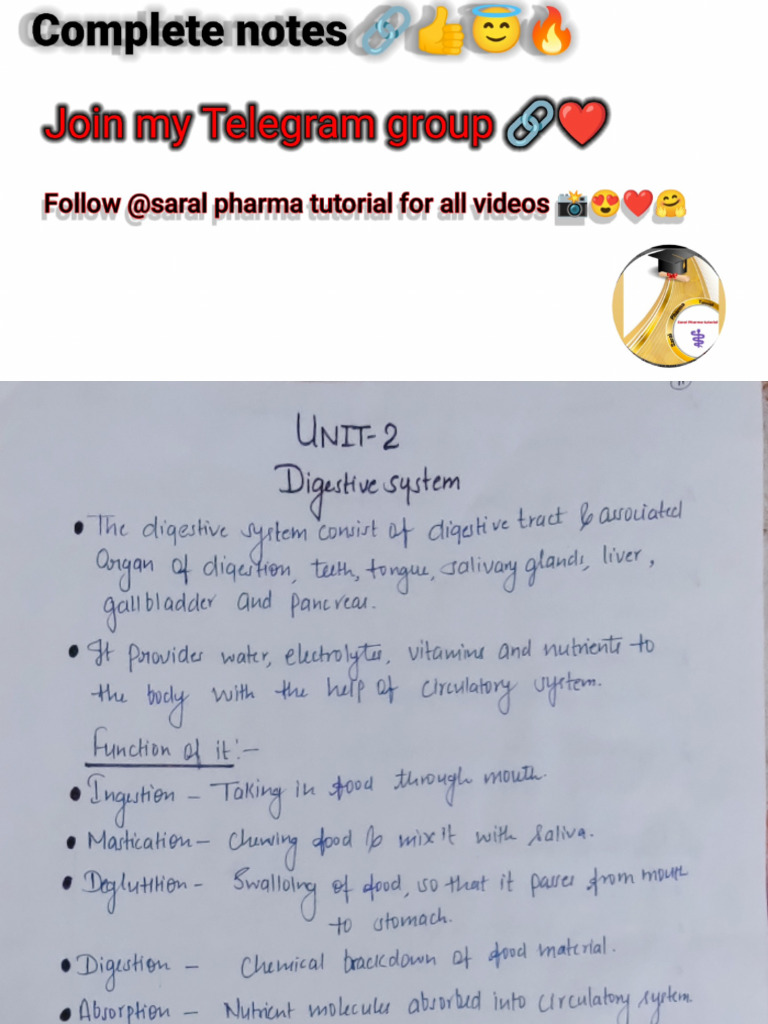 Complete notes 🔗👍😇🔥
Join my Telegram group 🔗❤️
Follow @saral pharma tutorial for all videos 📸😍❤️🤗
Saral Pharma tutorial
UNIT-2
Digestive system
• The digestive system consist of digestive tract & associated
Organ of digestion, teeth, tongue, salivary glands, liver,
gallbladder and pancreas.
• It provides water, electrolytes, vitamins and nutrients to
the body with the help of circulatory system.
Function of it:-
• Ingestion - Taking in food through mouth.
• Mastication - Chewing food & mix it with saliva.
• Deglutition - Swalloing of food, so that it passes from mouth
to stomach.
• Digestion - Chemical brackdown of food material.
• Absorption - Nutrient molecules absorbed into circulatory system